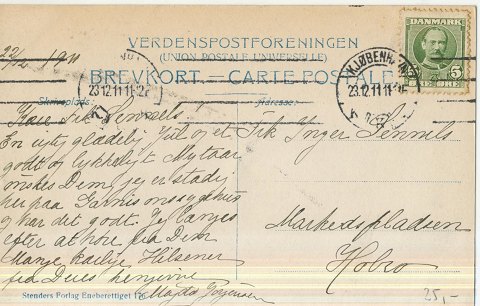 22/12 1911
VERDENSPOSTFORENINGEN
(UNION POSTALE UNIVERSELLE)
BREVKORT — CARTE POSTALE
DANMARK
5
ØRE
KJØBENHAVN
23.12.11 11-12F
23.12.11 11-12F
Skriveplads:
Adresse:
Kære Frk Semmels
En rigtig glædelig Jul og et
godt og lykkeligt Nytaar
ønskes Dem, jeg er stadig
her paa
og har det godt. Jeg længes
efter at høre fra Dem
Mange kærlige Hilsener
fra Deres hengivne
Magda Jörgensen
Frk Inger Semmels
Markedspladsen
Hobro
Stenders Forlag Eneberettiget
25,-